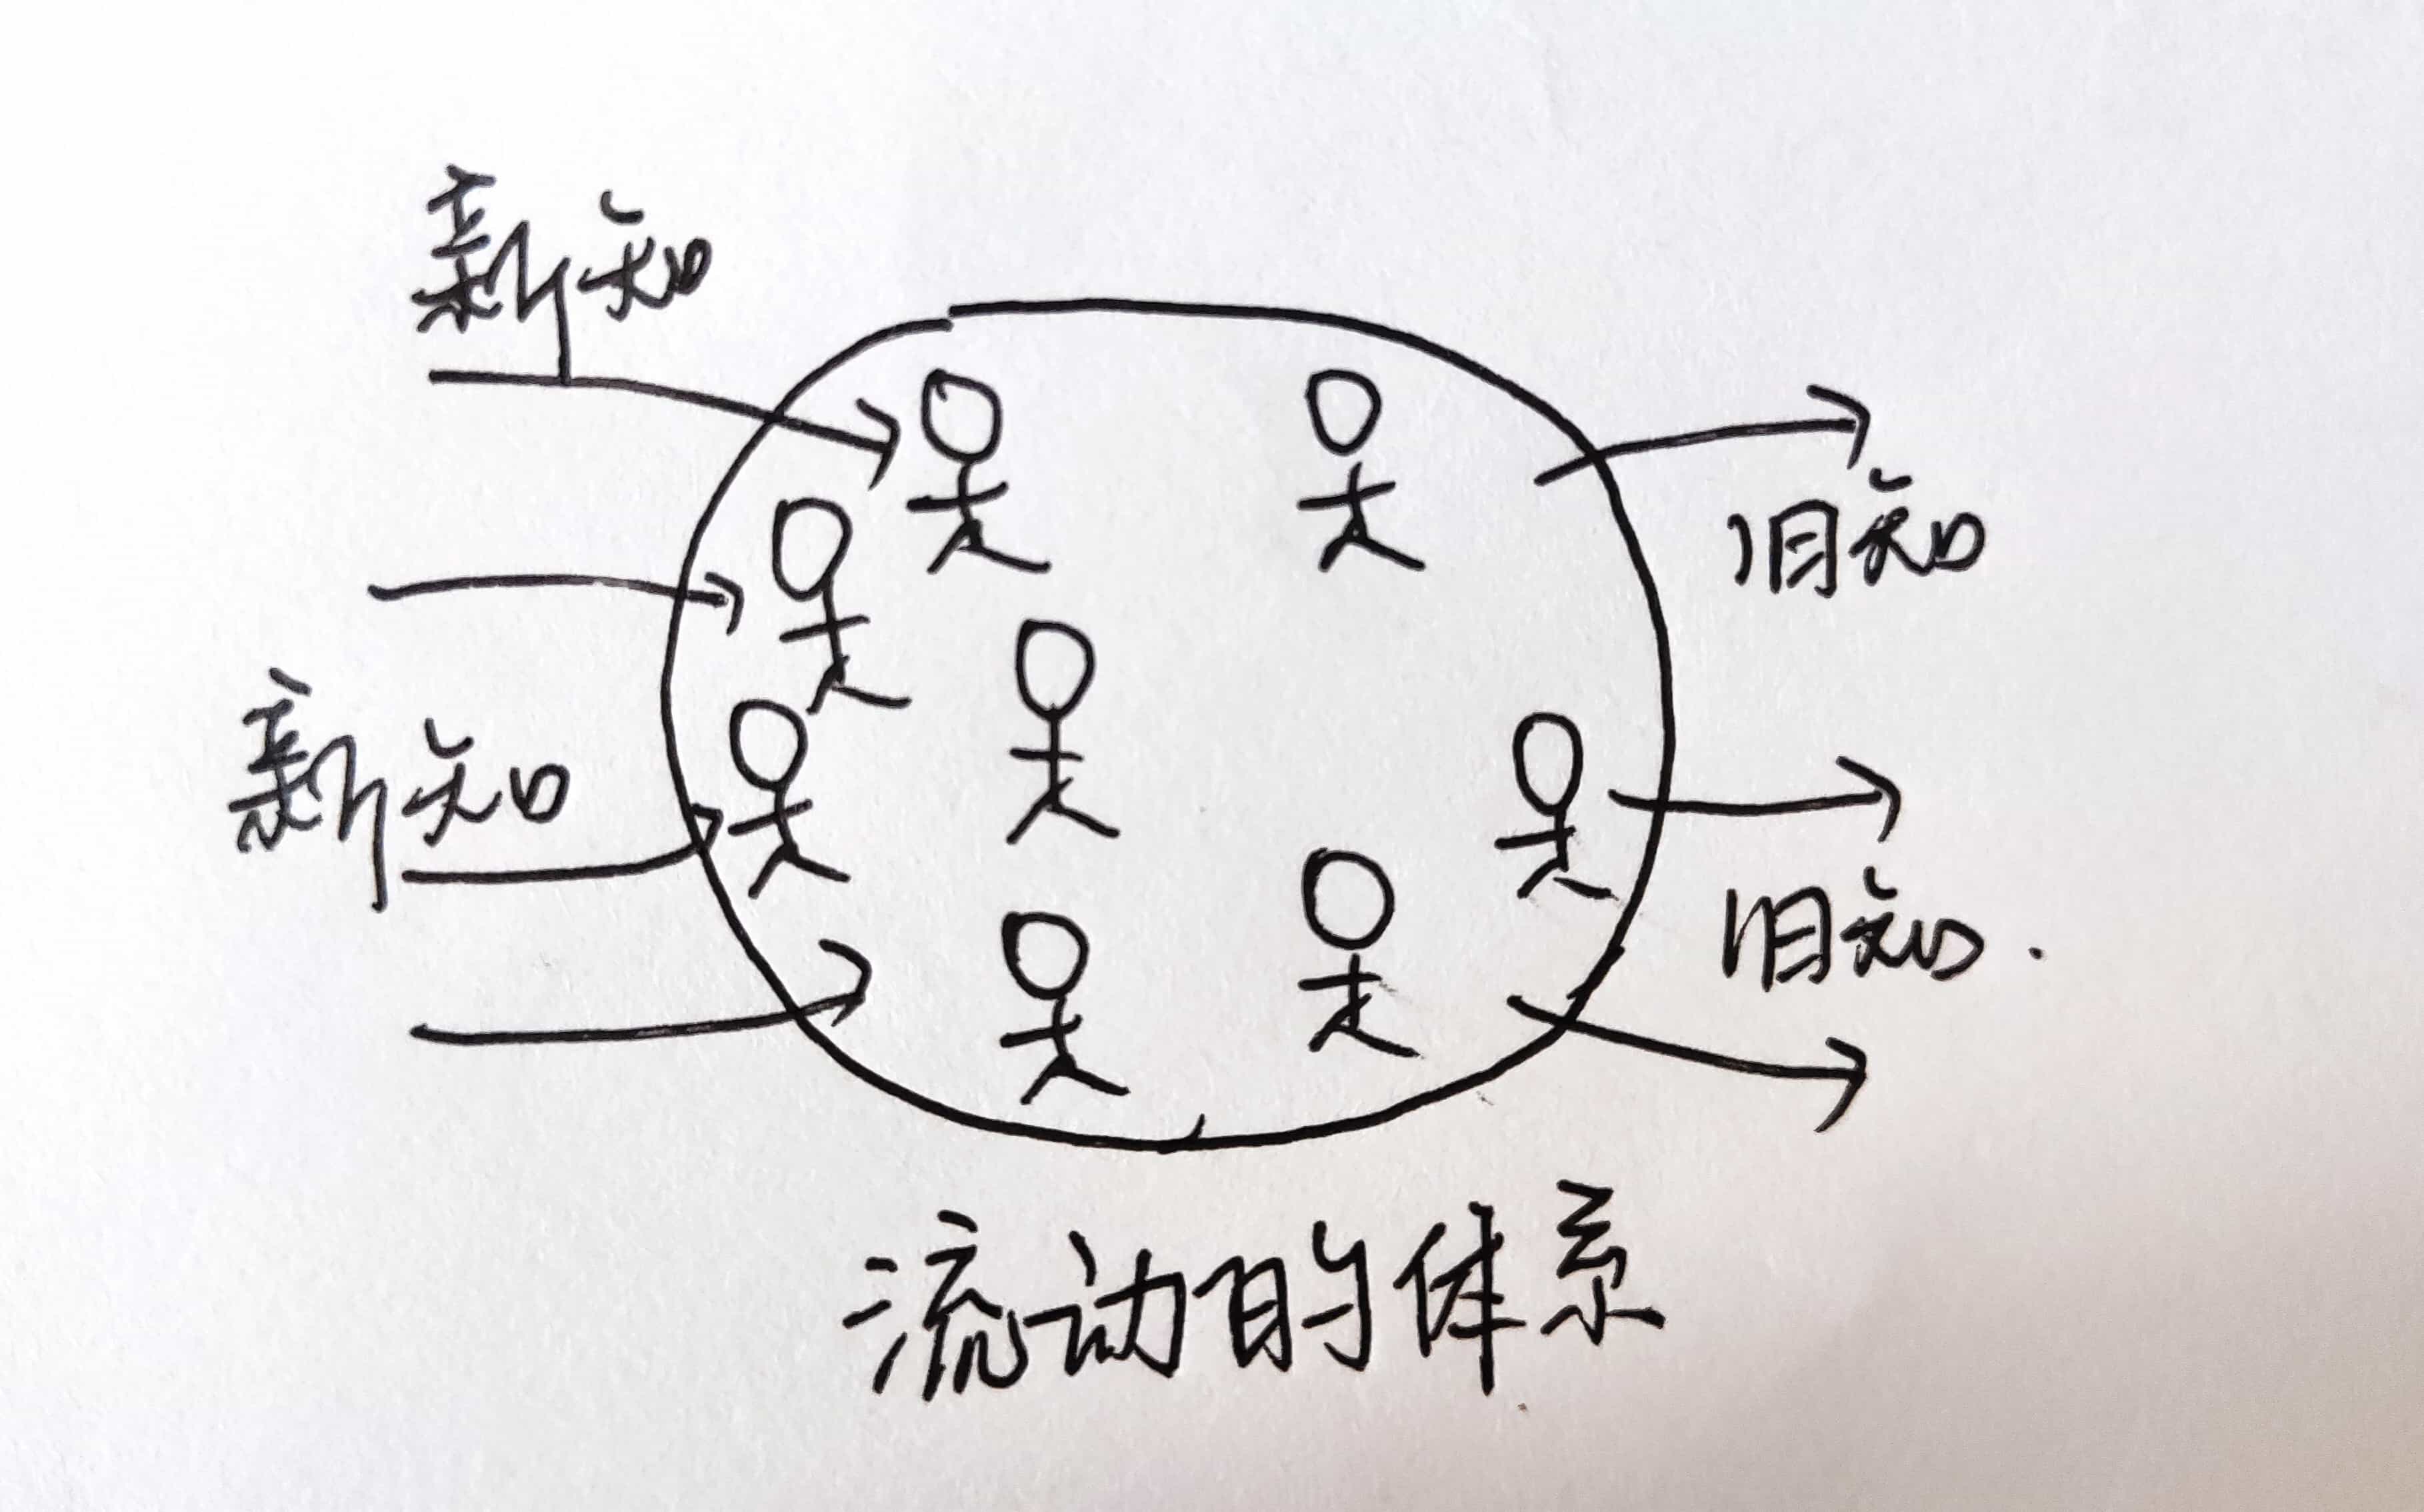 新知
旧知
新知
旧知.
流动的体系